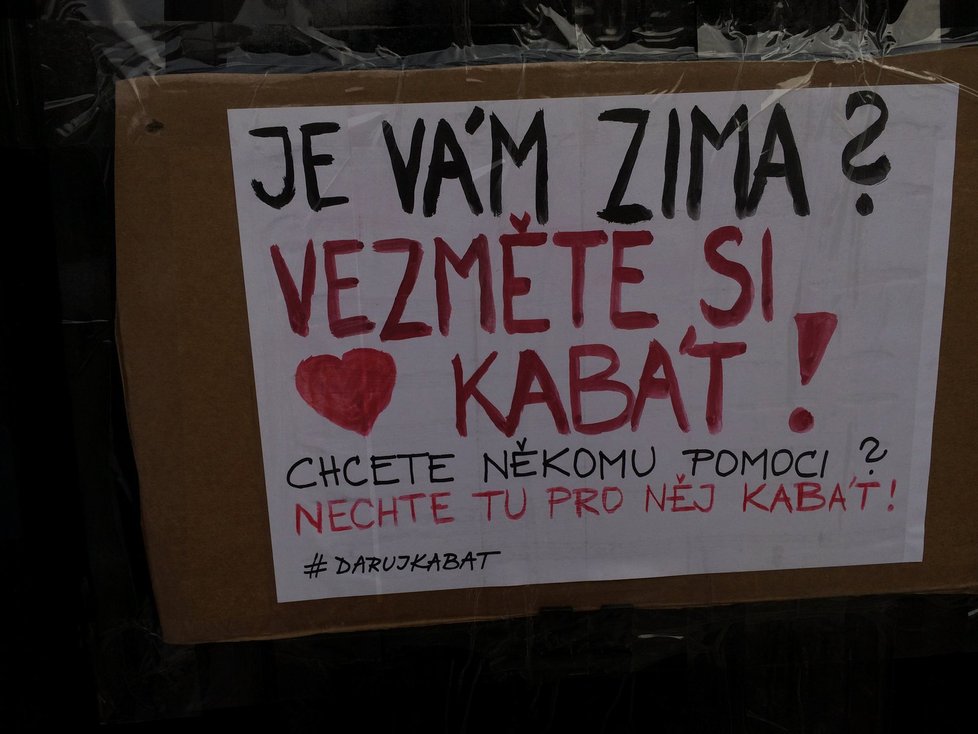 JE VÁM ZIMA?
VEZMĚTE SI
KABÁT!
CHCETE NĚKOMU POMOCI?
NECHTE TU PRO NĚJ KABÁT!
#DARUJKABAT